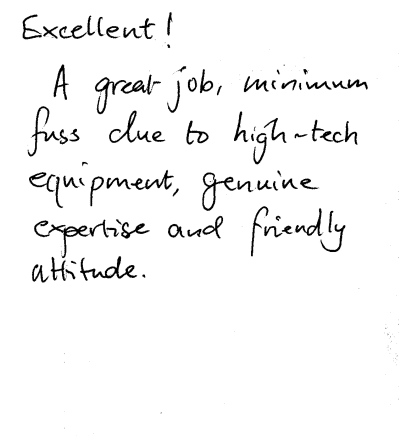 Excellent!
A great job, minimum
fuss due to high-tech
equipment, genuine
expertise and friendly
attitude.